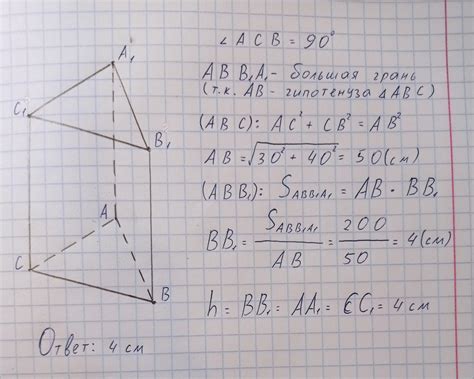 ∠ACB = 90°
ABB₁A₁ - большая грань
(т.к. AB - гипотенуза ΔABC)
(ABC): AC² + CB² = AB²
AB = √30² + 40² = 50(см)
(ABB₁): S_ABB₁A₁ = AB · BB₁
BB₁ = S_ABB₁A₁ / AB = 200 / 50 = 4(см)
h = BB₁ = AA₁ = CC₁ = 4 см
A₁
C₁
B₁
A
C
B
Ответ: 4 см